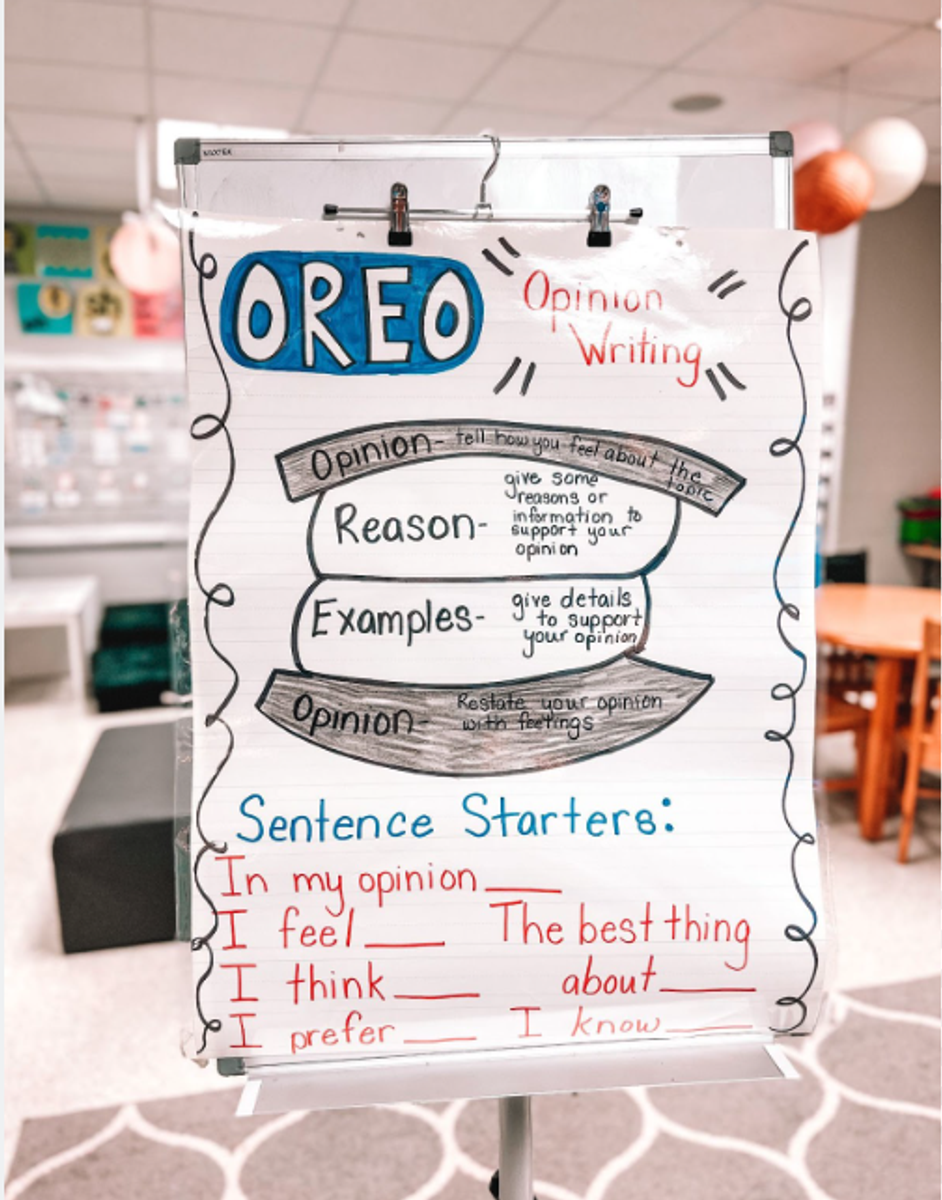 OREO
Opinion
Writing
Opinion- tell how you feel about the
topic
Reason-
give some
reasons or
information to
support your
opinion
Examples-
give details
to support
your opinion
Opinion-
Restate your opinion
with feelings
Sentence Starters:
In my opinion ____
I feel ____
The best thing
about ____
I think ____
I prefer ____
I know ____